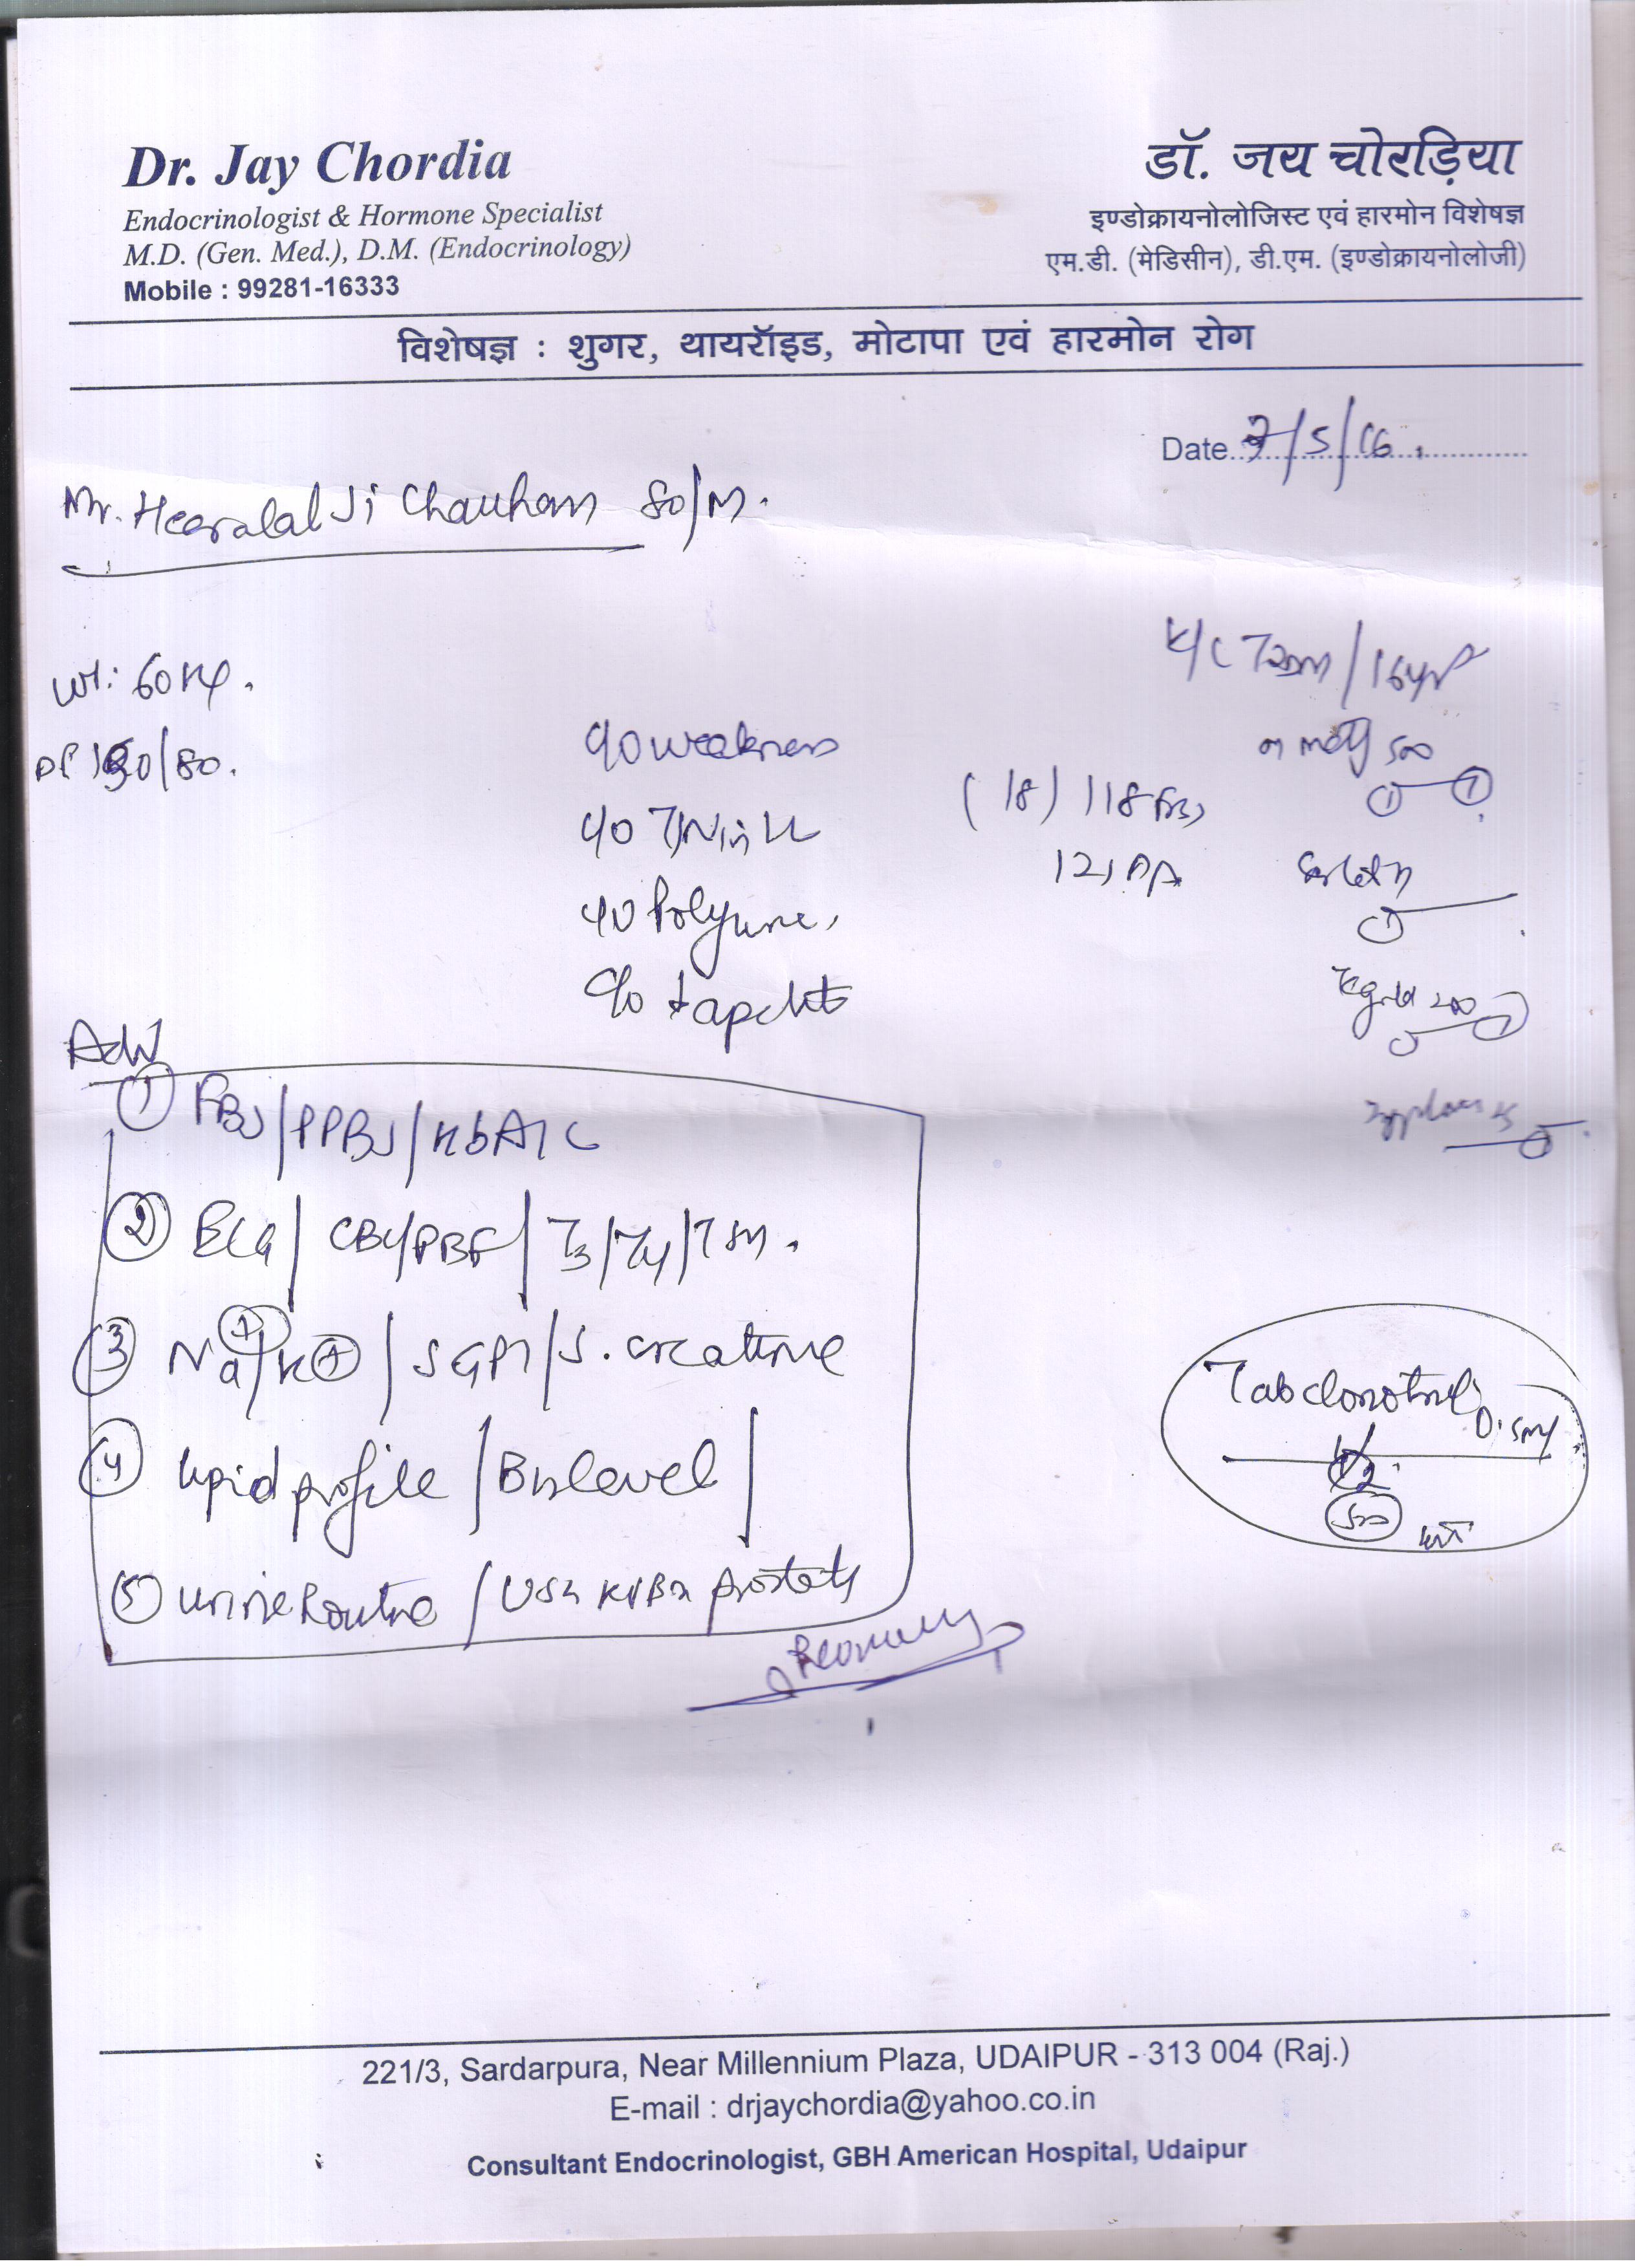 Dr. Jay Chordia
Endocrinologist & Hormone Specialist
M.D. (Gen. Med.), D.M. (Endocrinology)
Mobile : 99281-16333
डॉ. जय चोरड़िया
इण्डोक्रायनोलोजिस्ट एवं हारमोन विशेषज्ञ
एम.डी. (मेडिसीन), डी.एम. (इण्डोक्रायनोलोजी)
विशेषज्ञ : शुगर, थायरॉइड, मोटापा एवं हारमोन रोग
Date /5/16
Mr. Heeralal Ji Chauhan 80/M.
K/C T2DM / 16yr
Wt: 60 Kg.
c/o weakness
500
/80.
(18) 118 FBS
c/o T/N in LL
121 PP
c/o Polyuria,
c/o ↓ apetite
Adv
① FBS/PPBS/HbA1C
② ECG / CBC/PBF / T3/T4/TSH.
③ Na+/K+ / SGPT/S. creatinine
Tab clonotril 0.5mg
1/2
④ lipid profile / B12 level /
⑤ urine Routine / USG KUB prostate
221/3, Sardarpura, Near Millennium Plaza, UDAIPUR - 313 004 (Raj.)
E-mail : drjaychordia@yahoo.co.in
Consultant Endocrinologist, GBH American Hospital, Udaipur